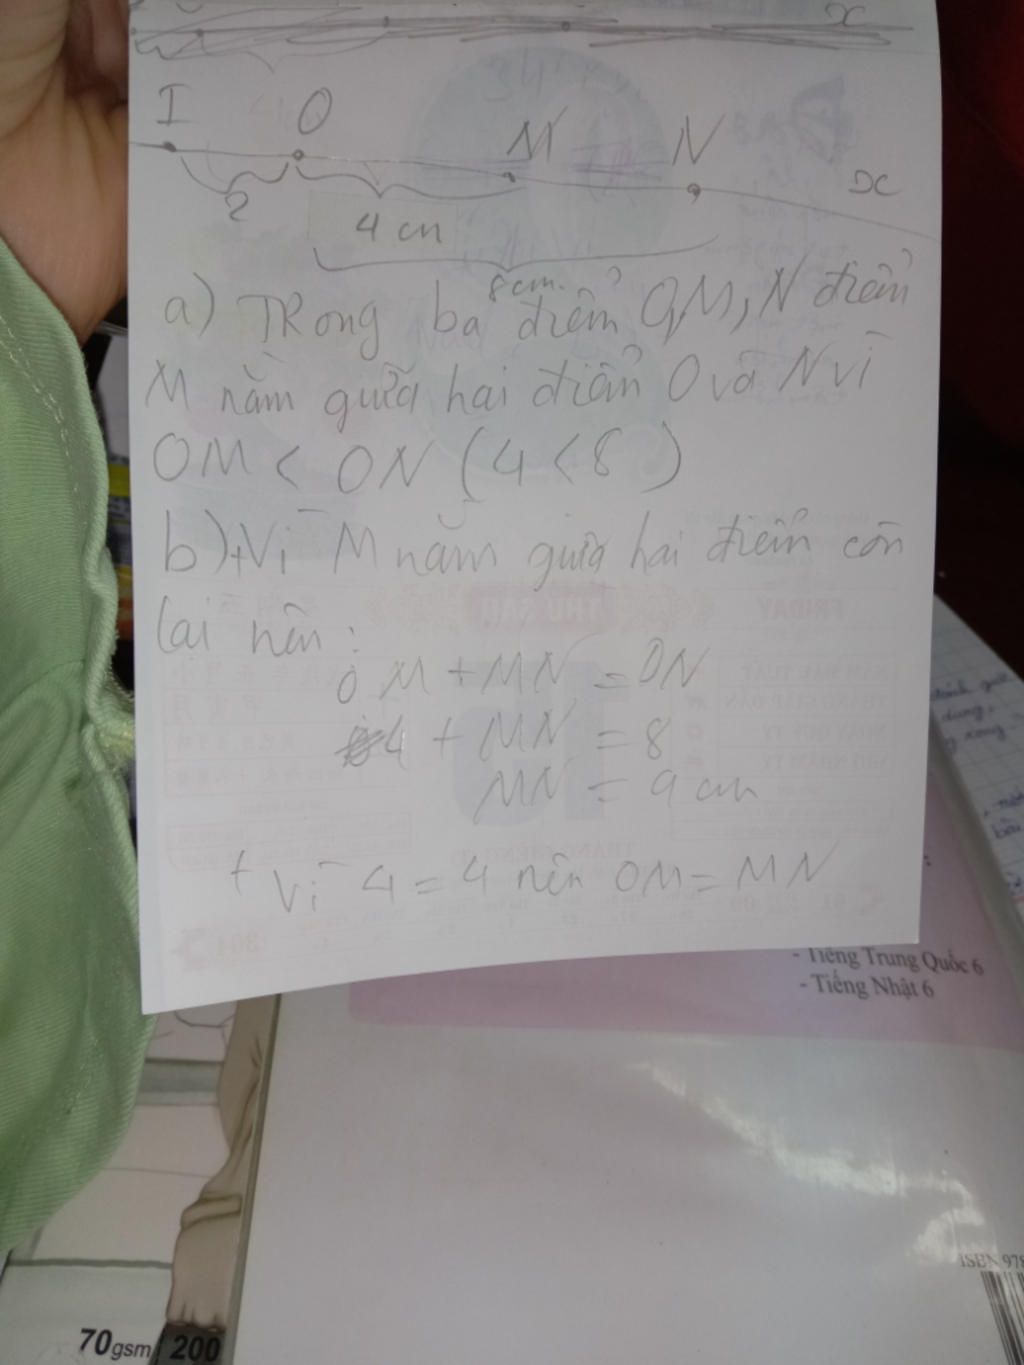 x
I O M N x
2 4 cm
8 cm.
a) TRong ba điểm O,M,N điểm
M nằm giữa hai điểm O và N vì
OM < ON (4 < 8)
b) + Vì M nằm giữa hai điểm còn
lại nên:
OM + MN = ON
4 + MN = 8
MN = 4 cm
+ Vì 4 = 4 nên OM = MN
- Tiếng Trung Quốc 6
- Tiếng Nhật 6
ISBN 978
70gsm 200